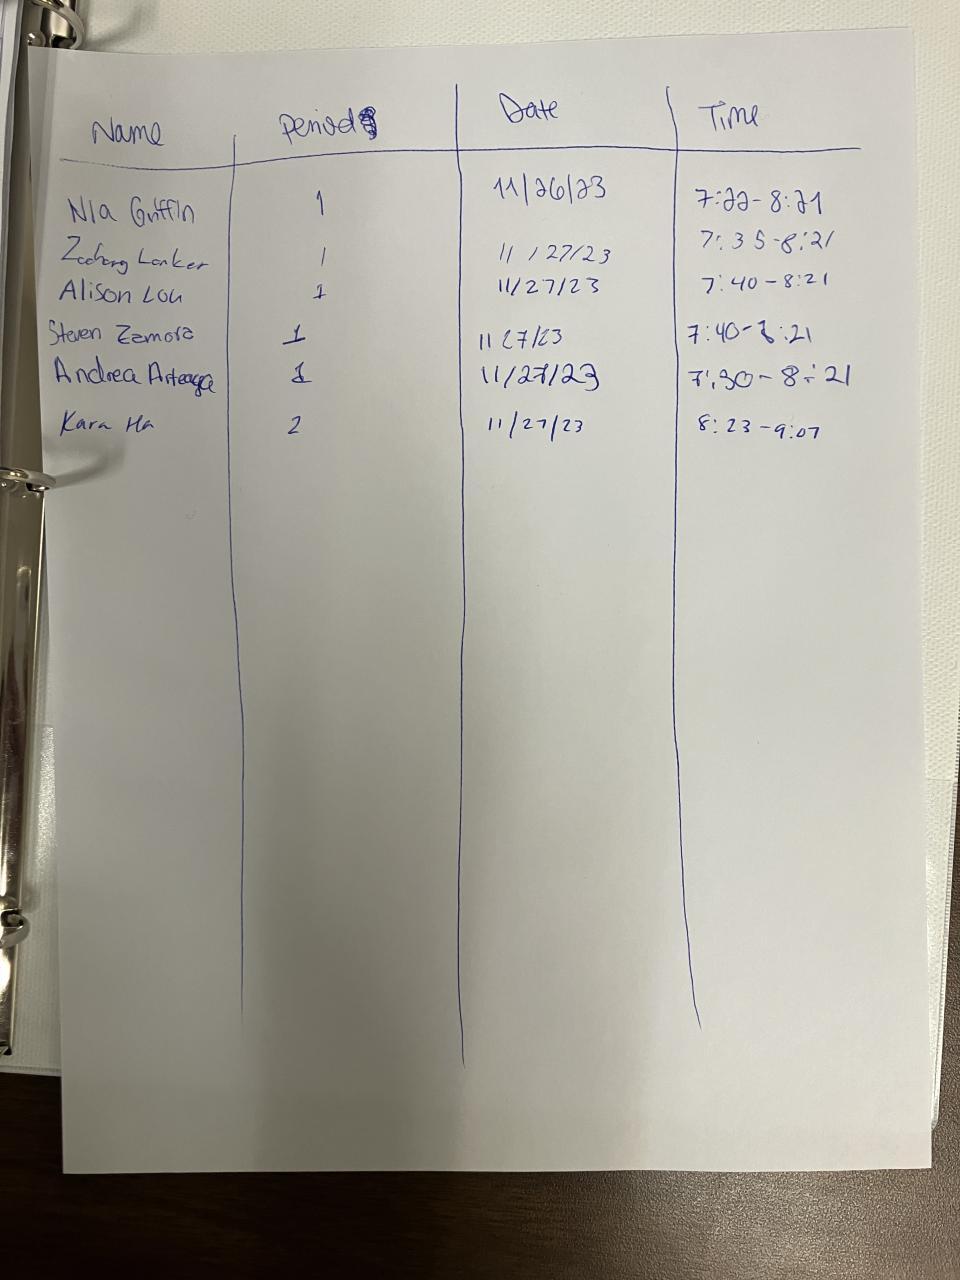 Name Period Date Time
Nia Griffin 1 11/26/23 7:22-8:21
Zachary Lonker 1 11/27/23 7:35-8:21
Alison Lou 1 11/27/23 7:40-8:21
Steven Zamora 1 11 27/23 7:40-8:21
Andrea Arteaga 1 11/27/23 7:30-8:21
Kara Ha 2 11/27/23 8:23-9:07